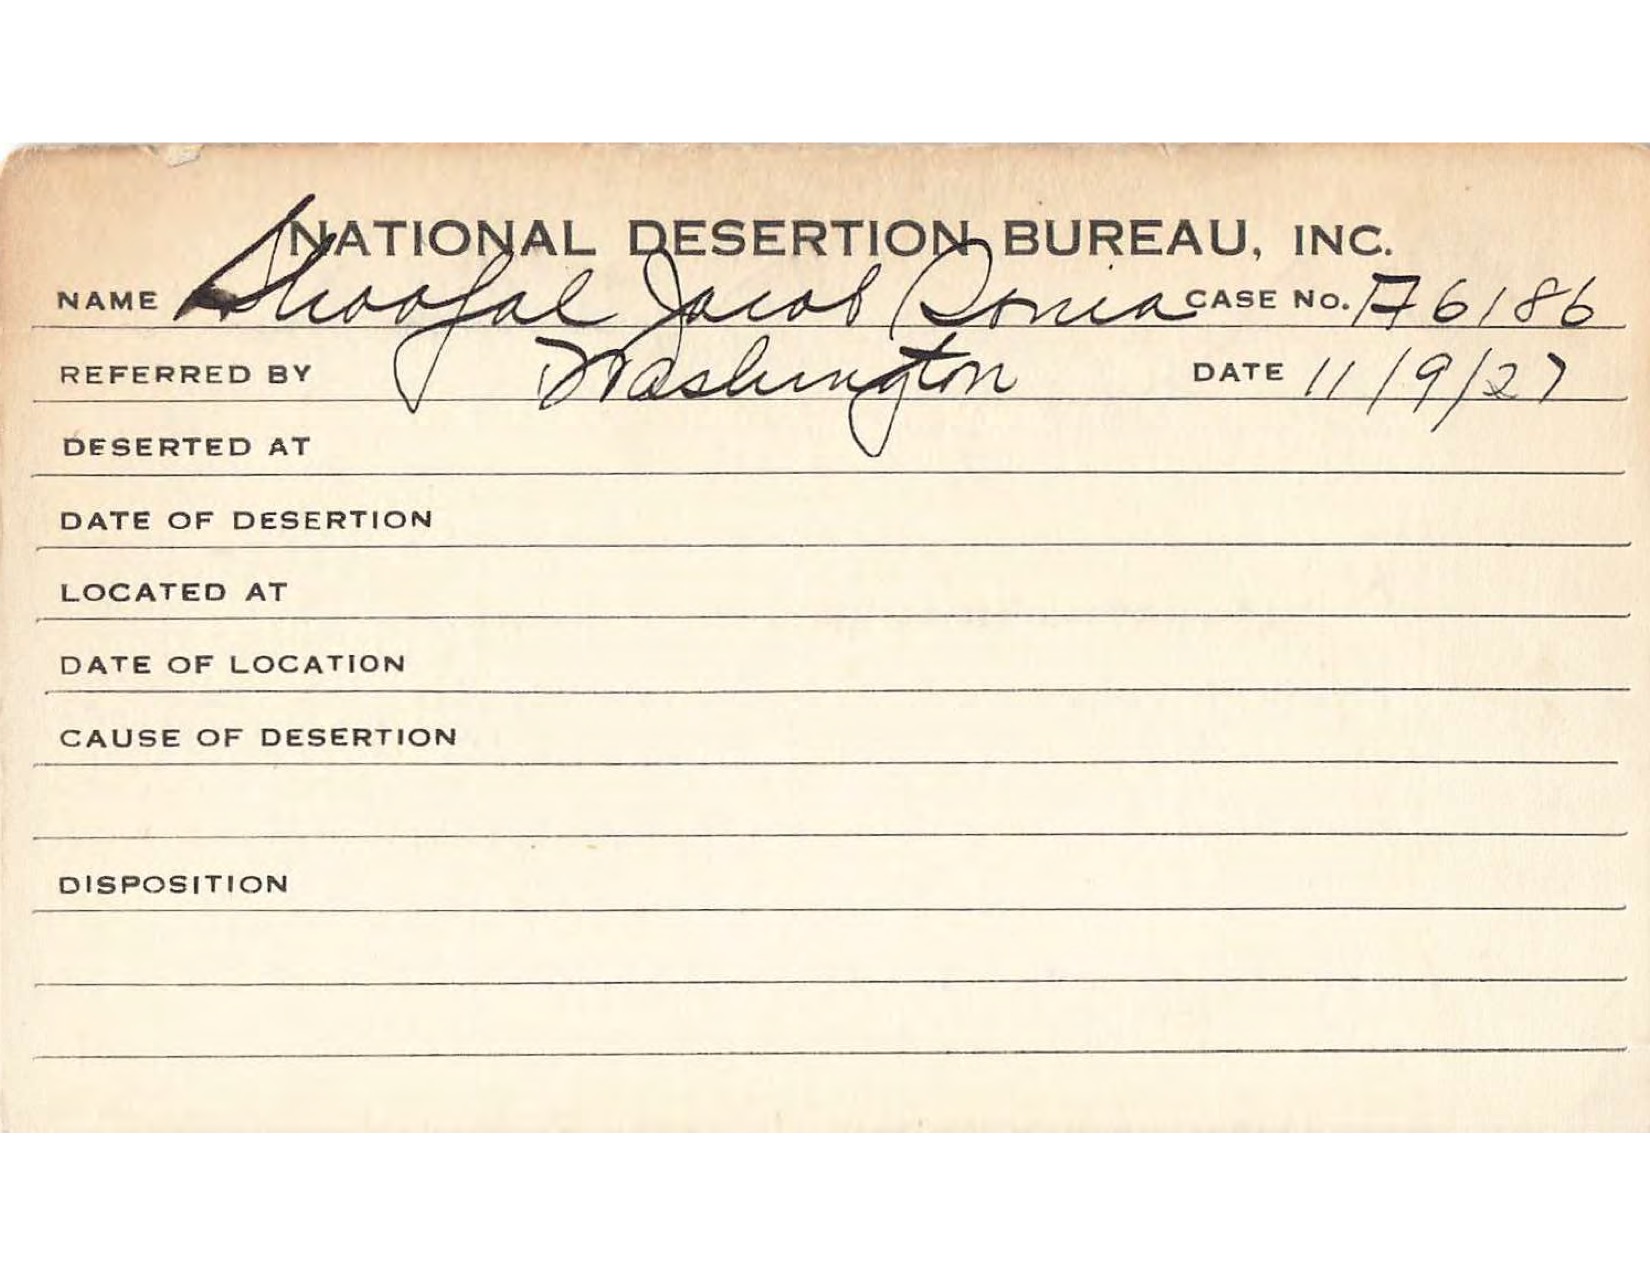 NATIONAL DESERTION BUREAU, INC.
NAME Shoofal Jacob (Sonia CASE No. A6186
REFERRED BY Washington DATE 11/9/27
DESERTED AT
DATE OF DESERTION
LOCATED AT
DATE OF LOCATION
CAUSE OF DESERTION
DISPOSITION